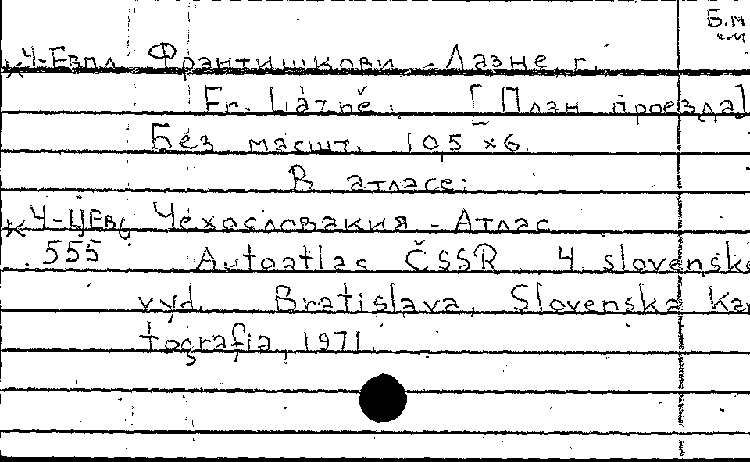 Б.м
ч.м
Ч-Евпл Франтишкови-Лазне, г.
Fr. Lázně. [План проезда]
Без масшт. 10,5 х 6.
В атласе:
Ч-ЦЕв6 Чехословакия - Атлас
555 Autoatlas ČSSR 4. slovenské
vyd. Bratislava, Slovenska Kar
tografia, 1971.